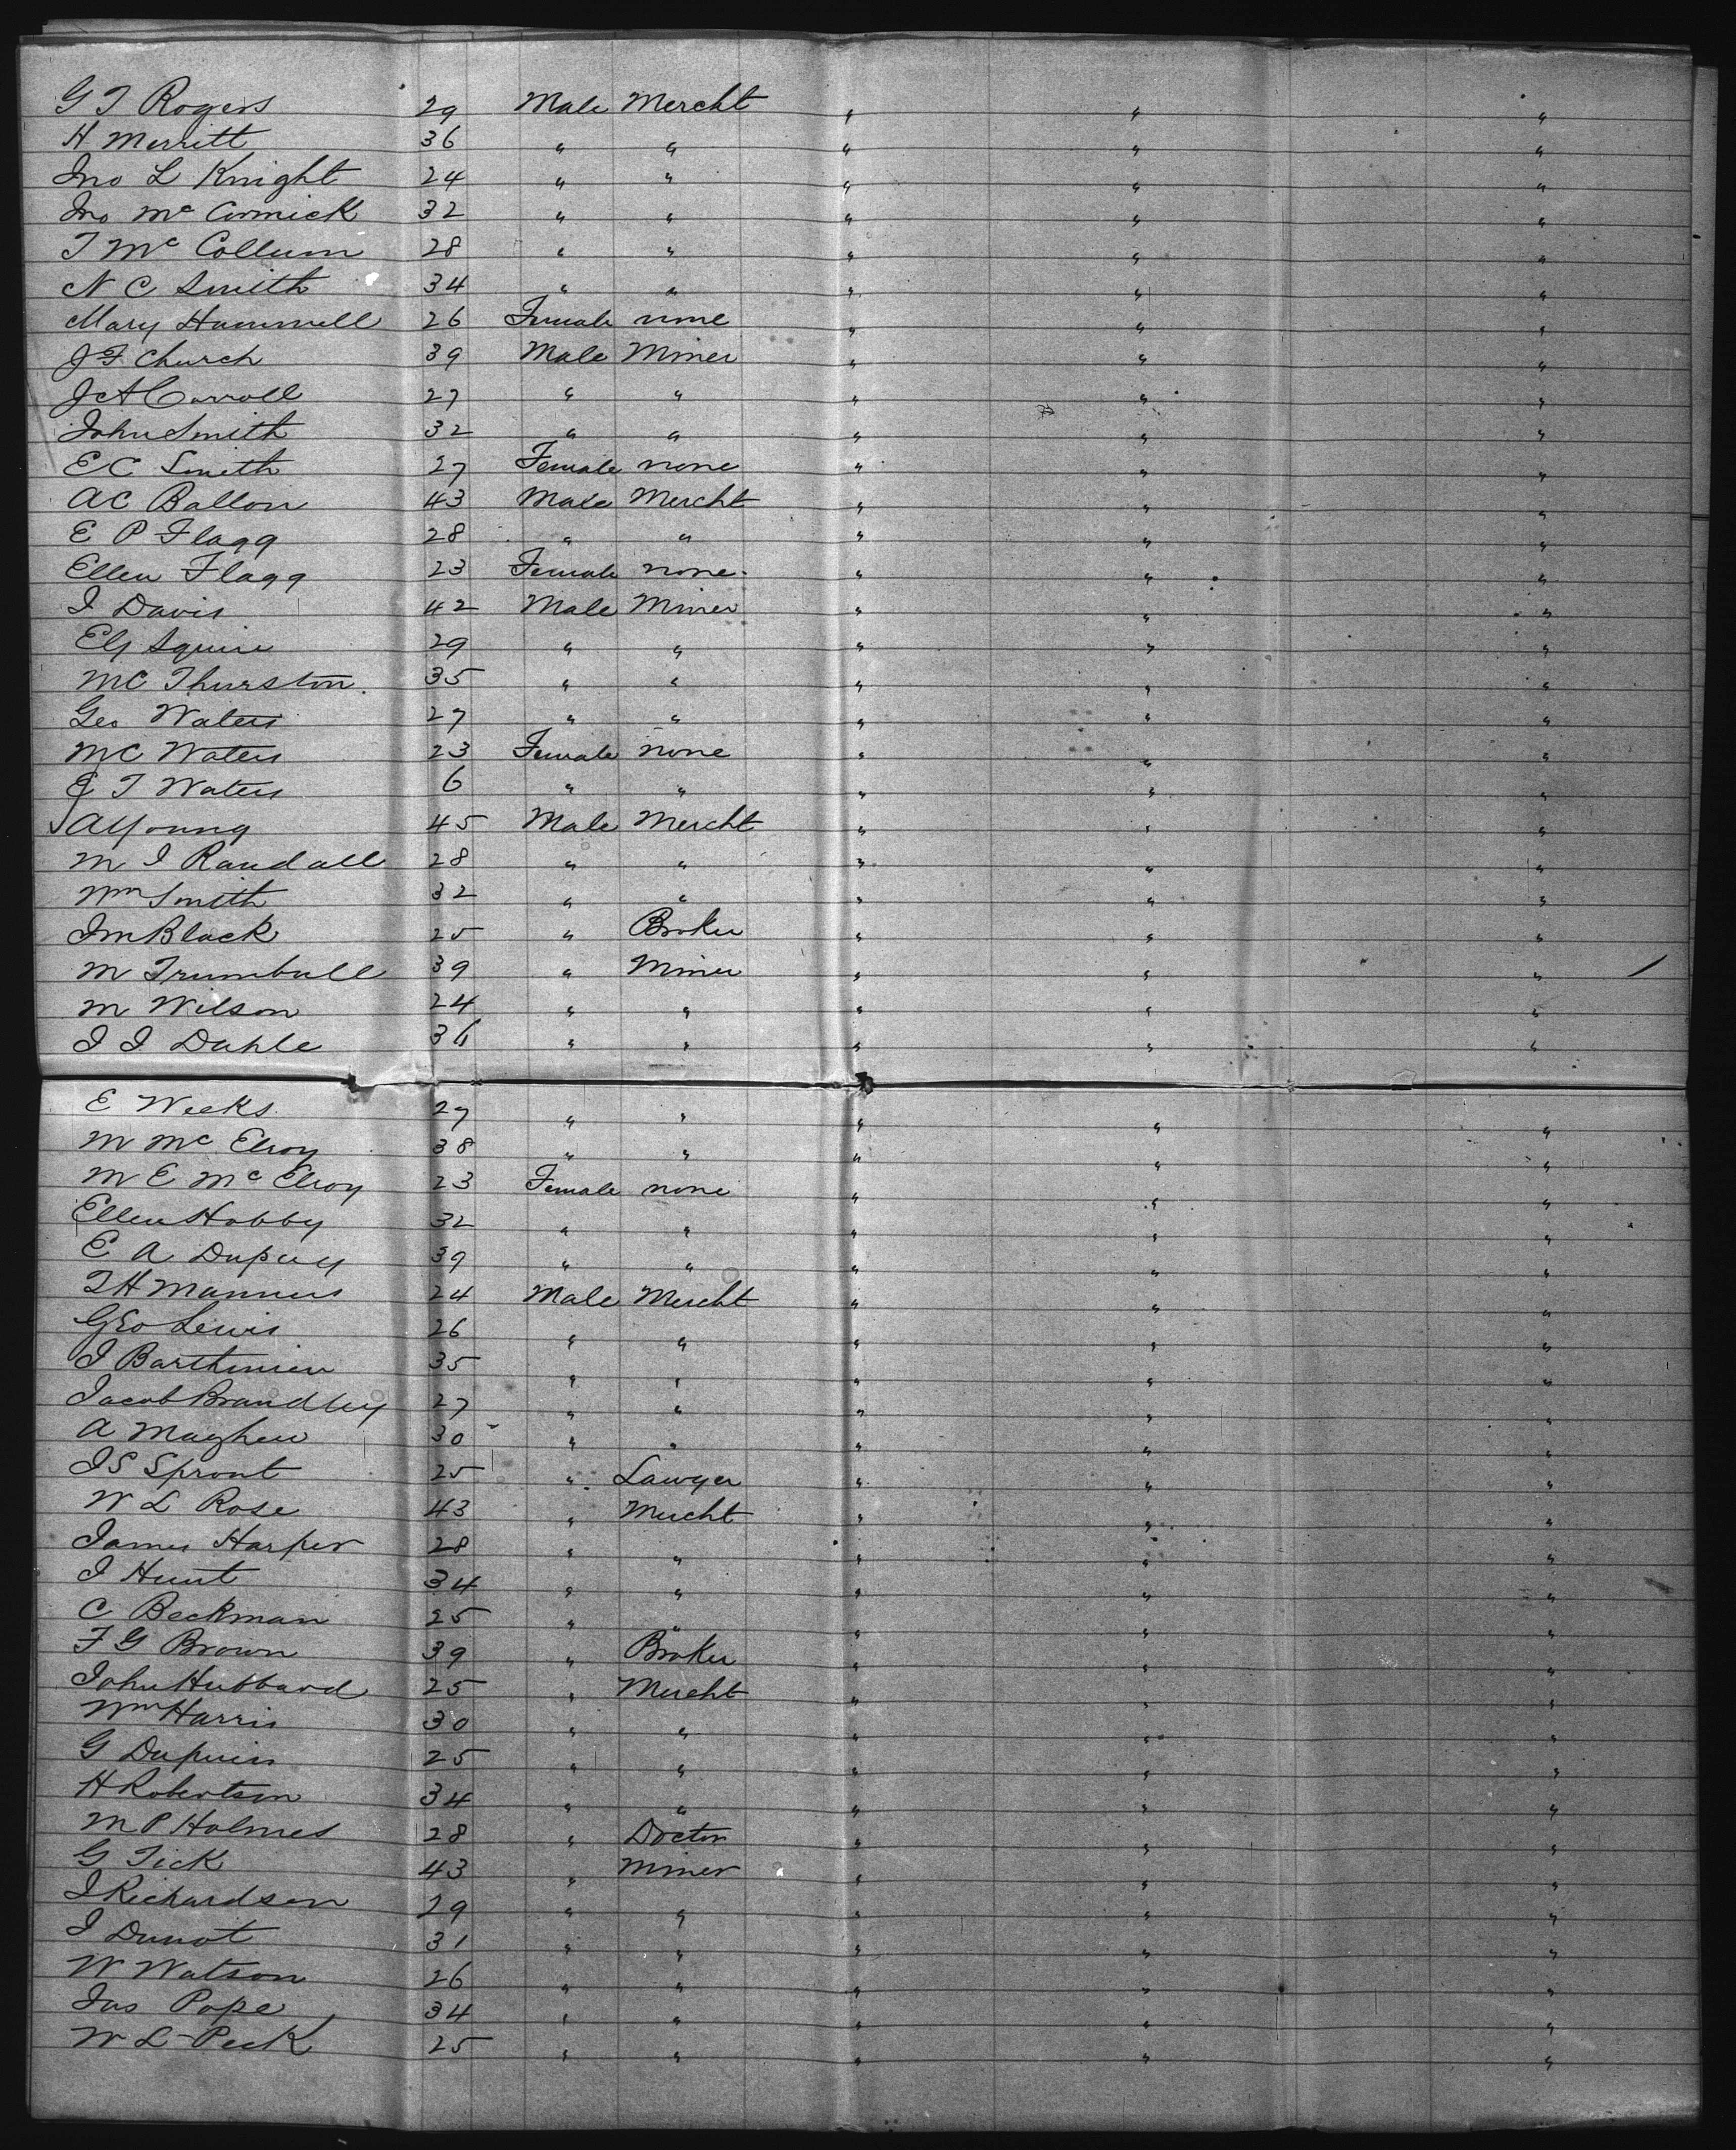 G T Rogers 29 Male Mercht " " "
H Merritt 36 " " " " "
Jno L Knight 24 " " " " "
Jno Mc Cormick 32 " " " " "
T Mc Collum 28 " " " " "
N C Smith 34 " " " " "
Mary Hammell 26 Female none " " "
J F Church 39 Male Miner " " "
J A Carroll 27 " " " " "
John Smith 32 " " " " "
E C Smith 27 Female none " " "
A C Ballou 43 Male Mercht " " "
E P Flagg 28 " " " " "
Ellen Flagg 23 Female none " " "
I Davis 42 Male Miner " " "
Squire 29 " " " " "
M C Thurston 35 " " " " "
Geo Waters 27 " " " " "
M C Waters 23 Female none " " "
E T Waters 6 " " " " "
A Young 45 Male Mercht " " "
M I Randall 28 " " " " "
Wm Smith 32 " " " " "
J M Black 25 " Broker " " "
M Trumbull 39 " Miner " " "
M Wilson 24 " " " " "
J J Dahle 36 " " " " "
E Weeks 27 " " " " "
M Mc Elroy 38 " " " " "
M E Mc Elroy 23 Female none " " "
Ellen Hobby 32 " " " " "
E A Dupuy 39 " " " " "
T H Manners 24 Male Mercht " " "
Geo Lewis 26 " " " " "
J 35 " " " " "
Jacob Brandley 27 " " " " "
A Mayhew 30 " " " " "
J S Sprout 25 " Lawyer " " "
W L Rose 43 " Mercht " " "
James Harper 28 " " " " "
J Hunt 34 " " " " "
C Beckman 25 " " " " "
F G Brown 39 " Broker " " "
John Hubbard 25 " Mercht " " "
Wm Harris 30 " " " " "
G Dupuis 25 " " " " "
H Robertson 34 " " " " "
M P Holmes 28 " Doctor " " "
G Tick 43 " Miner " " "
J Richardson 29 " " " " "
J 31 " " " " "
W Watson 26 " " " " "
Jas Pope 34 " " " " "
W L Peck 25 " " " " "